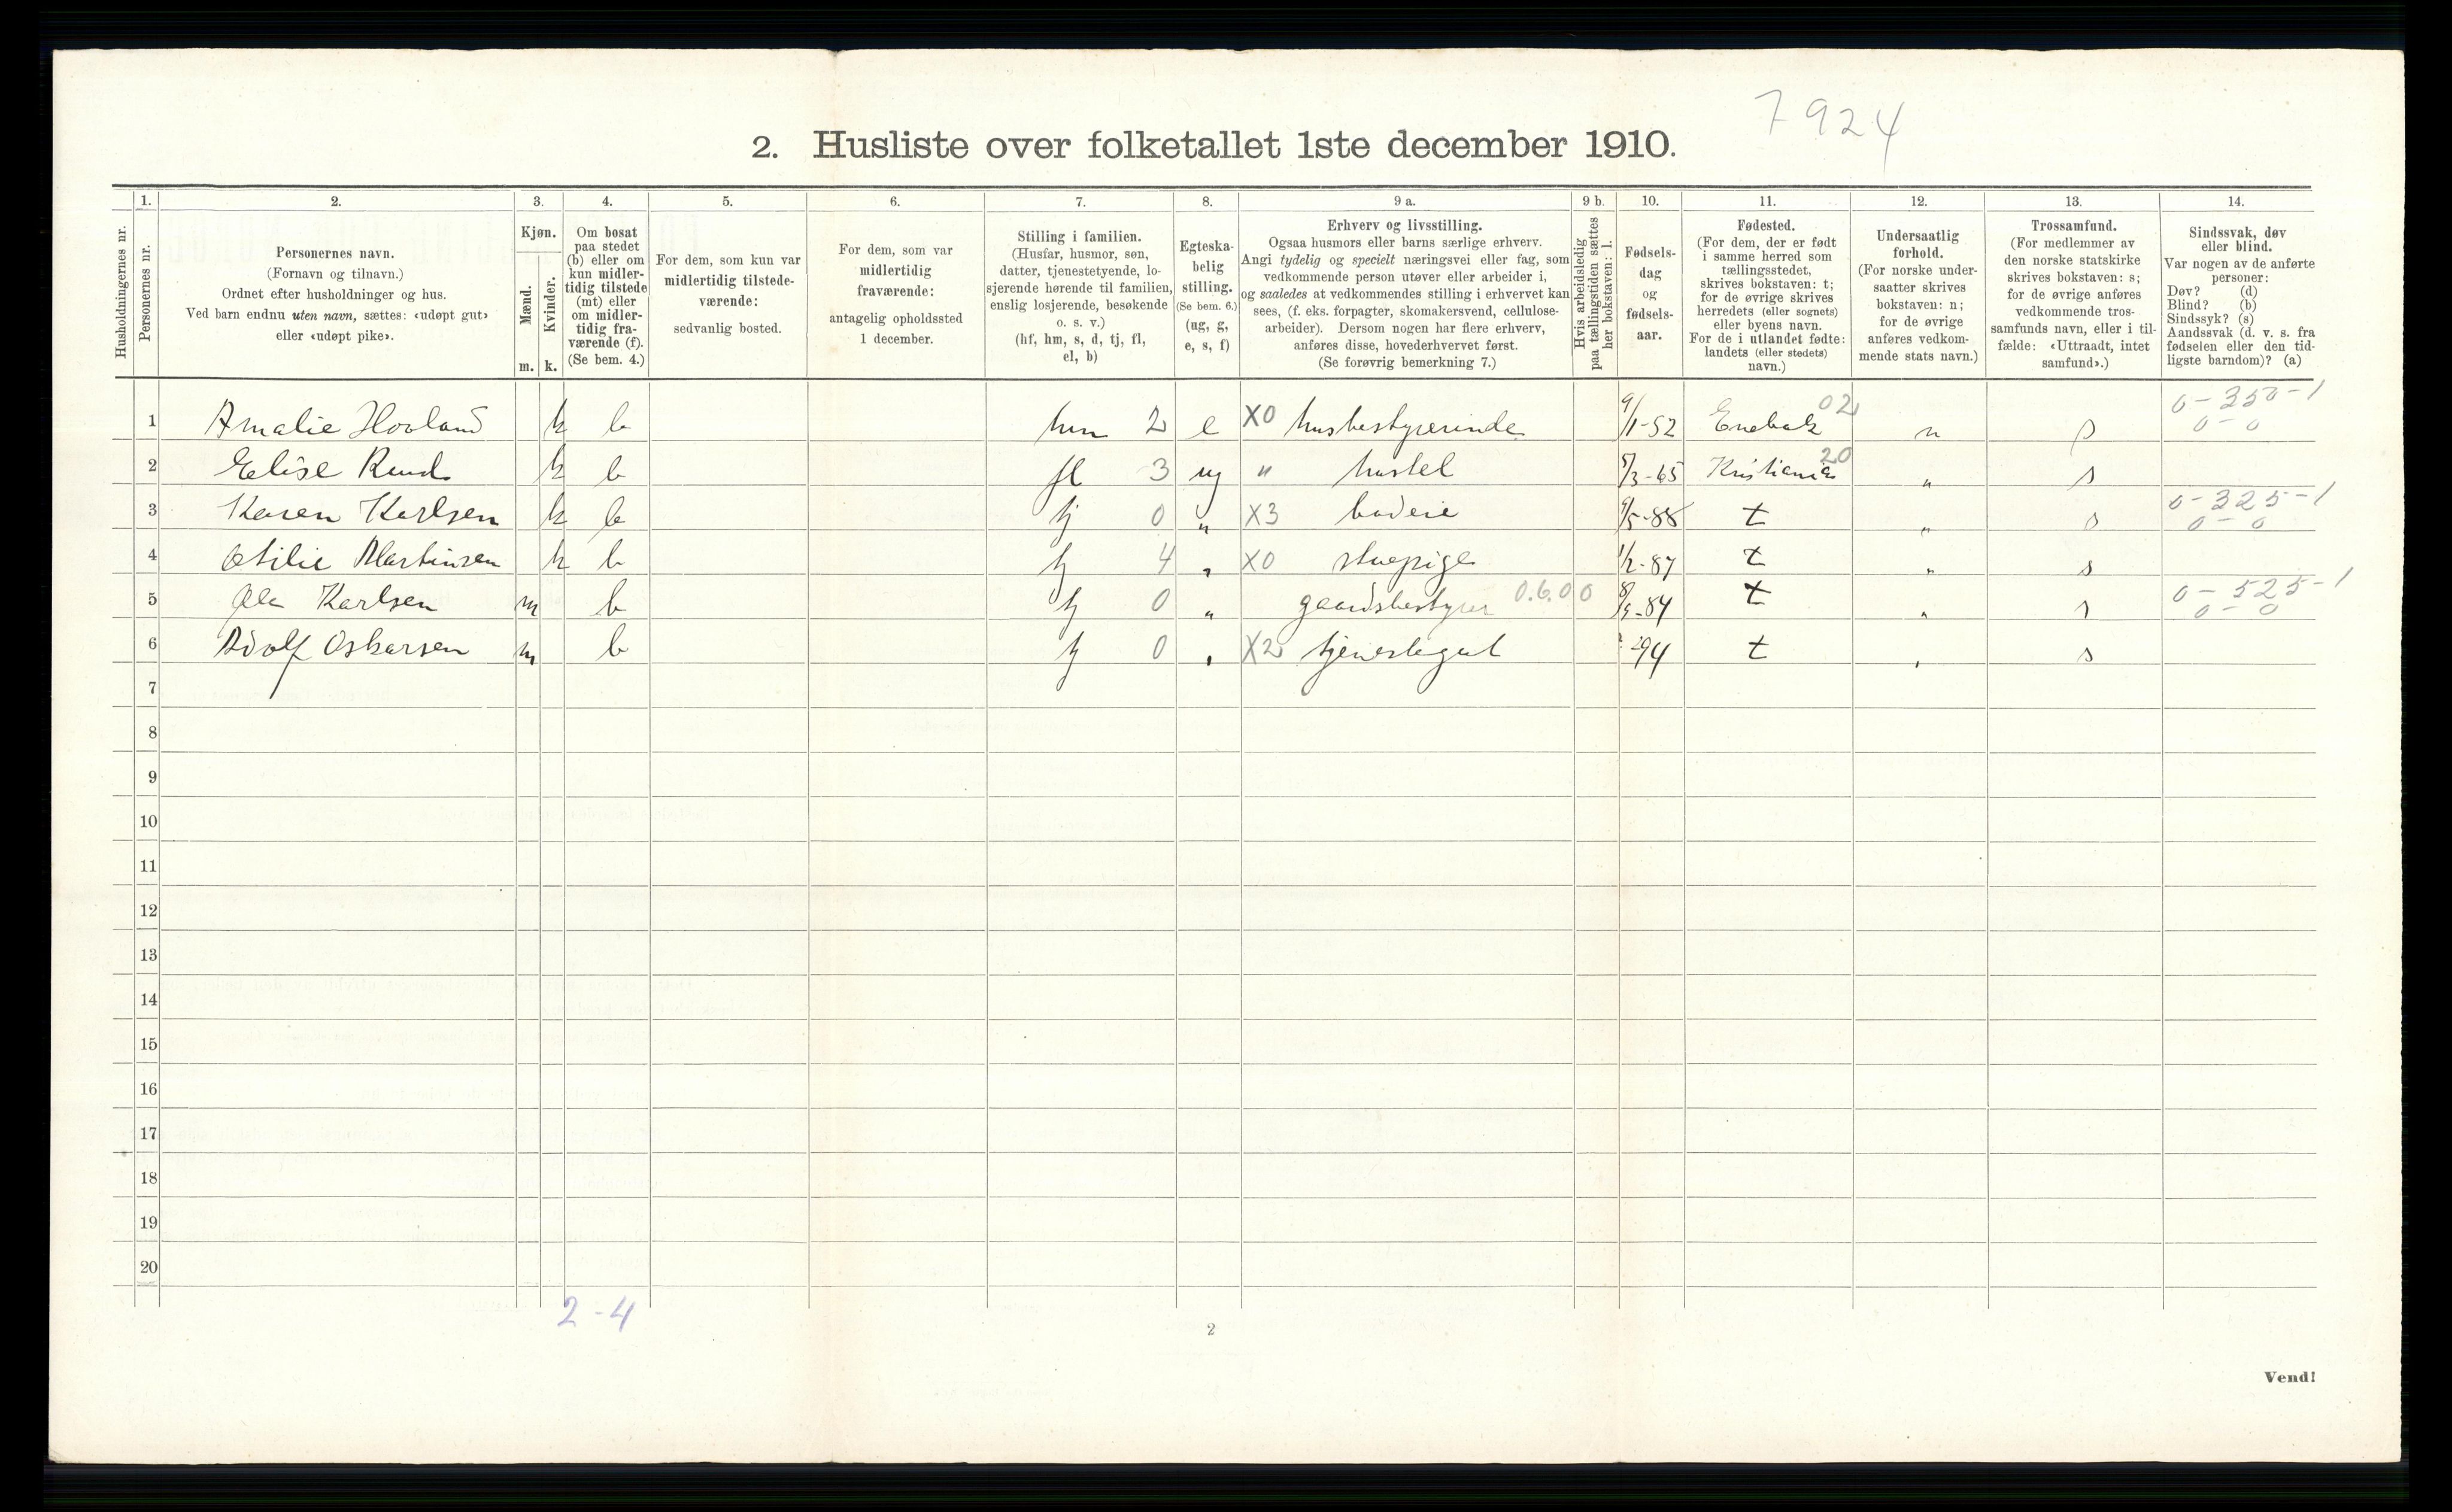 7924
2. Husliste over folketallet 1ste december 1910.
1. 2. 3. 4. 5. 6. 7. 8. 9 a. 9 b. 10. 11. 12. 13. 14.
Husholdningernes nr.
Personernes nr.
Personernes navn.
(Fornavn og tilnavn.)
Ordnet efter husholdninger og hus.
Ved barn endnu uten navn, sættes: «udøpt gut»
eller «udøpt pike».
Kjøn.
Mænd.
Kvinder.
m. k.
Om bosat
paa stedet
(b) eller om
kun midler-
tidig tilstede
(mt) eller
om midler-
tidig fra-
værende (f).
(Se bem. 4.)
For dem, som kun var
midlertidig tilstede-
værende:
sedvanlig bosted.
For dem, som var
midlertidig
fraværende:
antagelig opholdssted
1 december.
Stilling i familien.
(Husfar, husmor, søn,
datter, tjenestetyende, lo-
sjerende hørende til familien,
enslig losjerende, besøkende
o. s. v.)
(hf, hm, s, d, tj, fl,
el, b)
Egteska-
belig
stilling.
(Se bem. 6.)
(ug, g,
e, s, f)
Erhverv og livsstilling.
Ogsaa husmors eller barns særlige erhverv.
Angi tydelig og specielt næringsvei eller fag, som
vedkommende person utøver eller arbeider i,
og saaledes at vedkommendes stilling i erhvervet kan
sees, (f. eks. forpagter, skomakersvend, cellulose-
arbeider). Dersom nogen har flere erhverv,
anføres disse, hovederhvervet først.
(Se forøvrig bemerkning 7.)
Hvis arbeidsledig
paa tællingstiden sættes
her bokstaven: l.
Fødsels-
dag
og
fødsels-
aar.
Fødested.
(For dem, der er født
i samme herred som
tællingsstedet,
skrives bokstaven: t;
for de øvrige skrives
herredets (eller sognets)
eller byens navn.
For de i utlandet fødte:
landets (eller stedets)
navn.)
Undersaatlig
forhold.
(For norske under-
saatter skrives
bokstaven: n;
for de øvrige
anføres vedkom-
mende stats navn.)
Trossamfund.
(For medlemmer av
den norske statskirke
skrives bokstaven: s;
for de øvrige anføres
vedkommende tros-
samfunds navn, eller i til-
fælde: «Uttraadt, intet
samfund».)
Sindssvak, døv
eller blind.
Var nogen av de anførte
personer:
Døv? (d)
Blind? (b)
Sindssyk? (s)
Aandssvak (d. v. s. fra
fødselen eller den tid-
ligste barndom)? (a)
1 Amalie Hovland k b hm 2 e X0 husbestyrerinde 9/1-52 Enebak 02 n s 0-350-1 0-0
2 Elise Ruud k b fl 3 ug " hustel 5/3-65 Kristiania 20 " s
3 Karen Karlsen k b tj 0 " X3 budeie 9/5-88 t " s 0-325-1 0-0
4 Otilie Martinsen k b tj 4 " X0 stuepige 1/2-87 t " s
5 Ole Karlsen m b tj 0 " gaardsbestyrer 0.6.00 8/9-84 t " s 0-525-1 0-0
6 Adolf Oskarsen m b tj 0 " X2 tjenestegut -94 t " s
7
8
9
10
11
12
13
14
15
16
17
18
19
20
2-4
2
Vend!